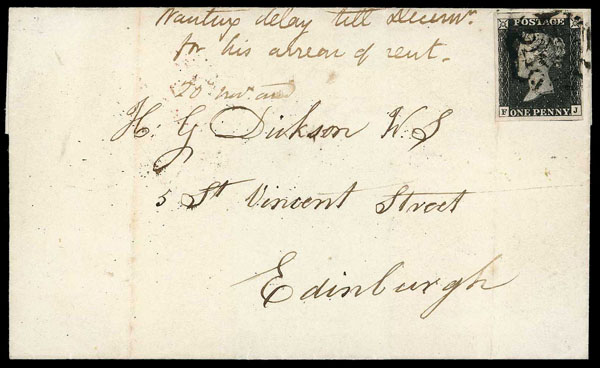 Wanting delay till Decemr.
for his arrear of rent.
H. G Dickson W. S
5 St Vincent Street
Edinburgh
POSTAGE
F ONE PENNY J